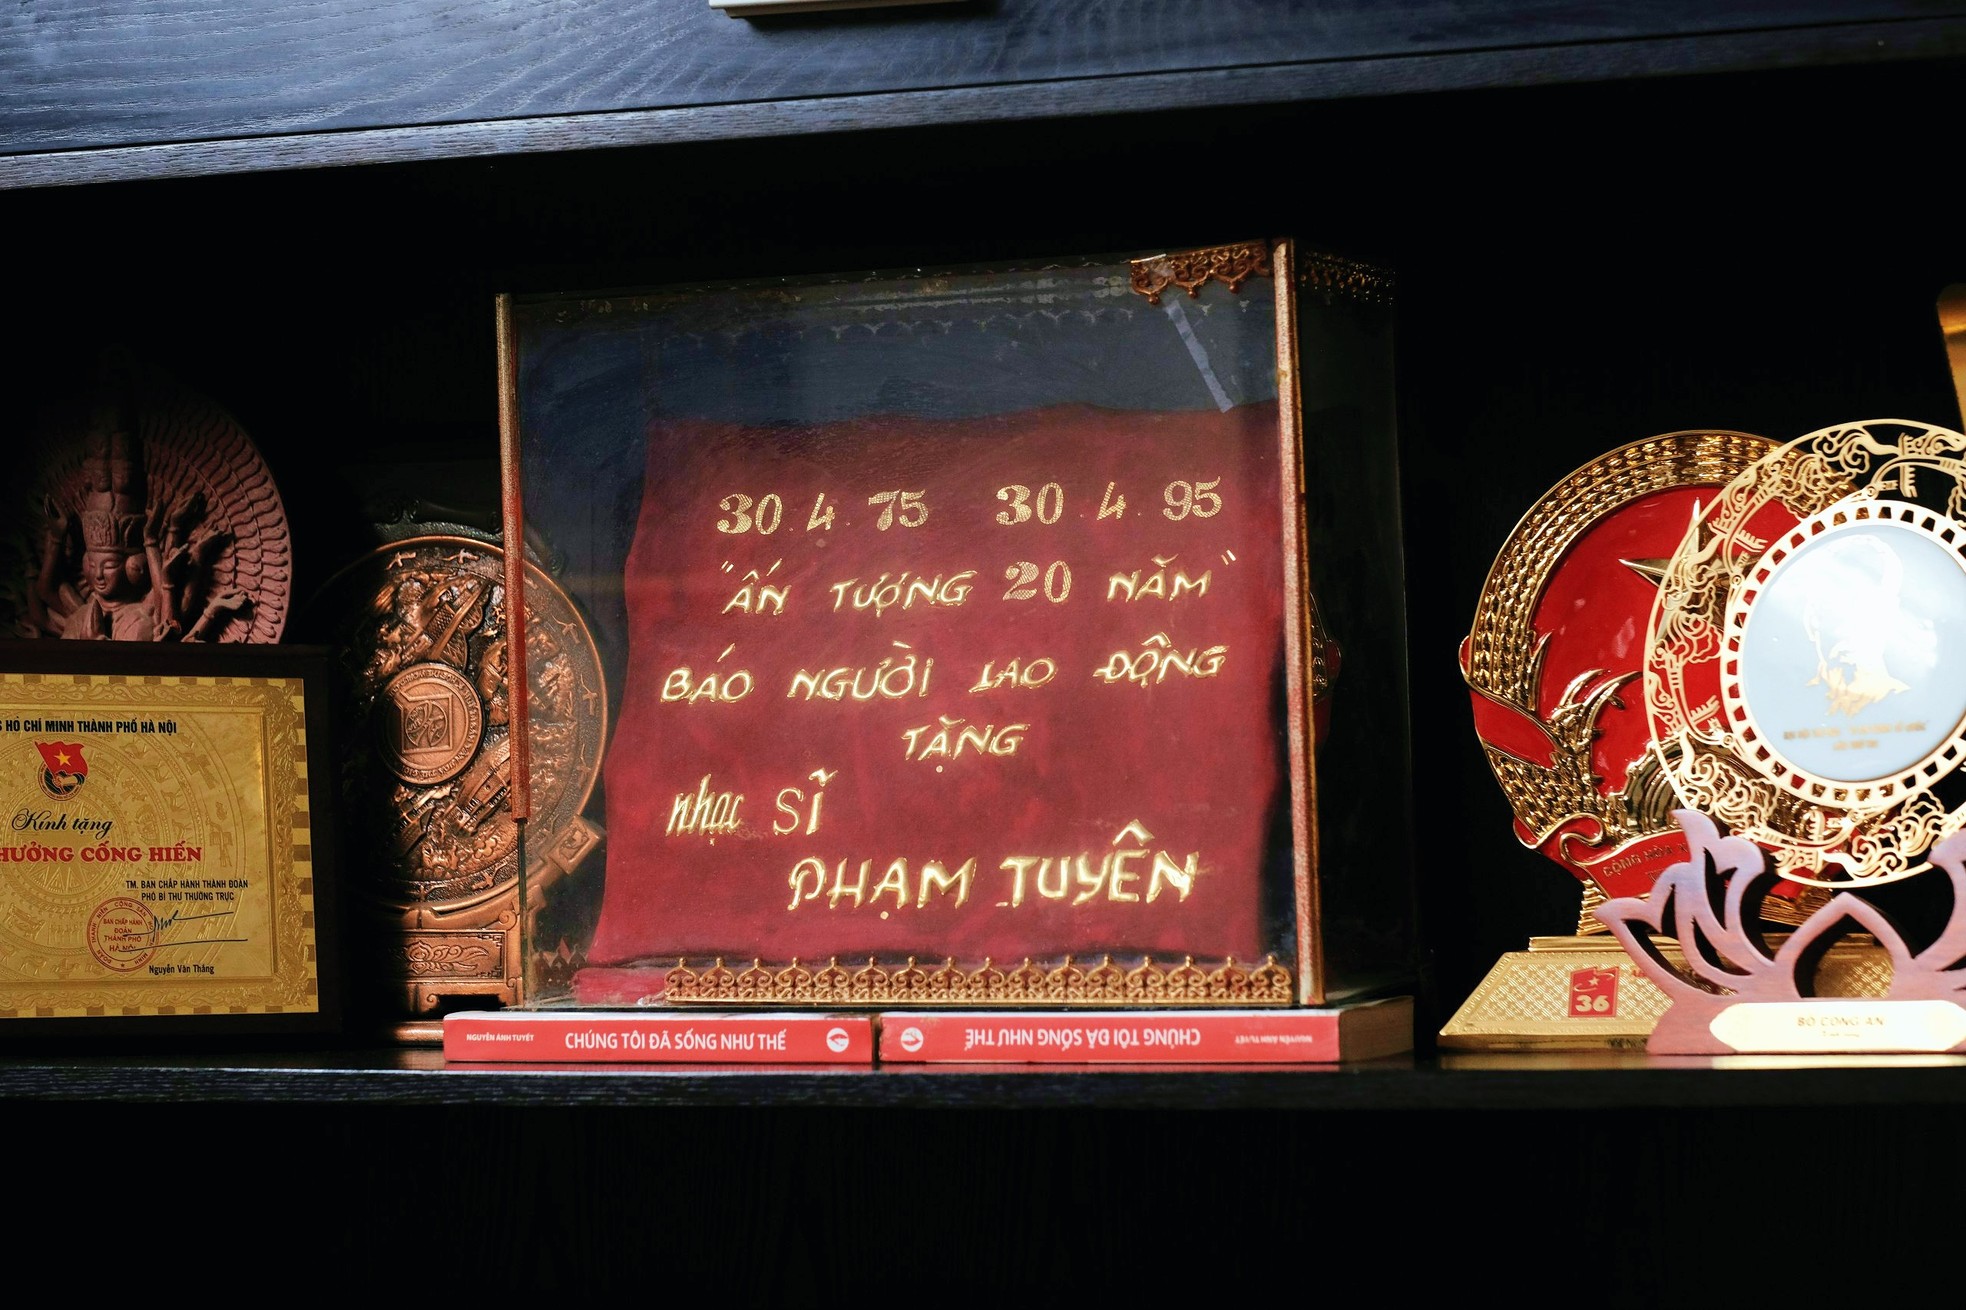 HỒ CHÍ MINH THÀNH PHỐ HÀ NỘI
Kính tặng
HƯỞNG CỐNG HIẾN
TM. BAN CHẤP HÀNH THÀNH ĐOÀN
PHÓ BÍ THƯ THƯỜNG TRỰC
BAN CHẤP HÀNH
ĐOÀN
THÀNH PHỐ
HÀ NỘI
Nguyễn Văn Thắng
30.4.75 30.4.95
"ẤN TƯỢNG 20 NĂM"
BÁO NGƯỜI LAO ĐỘNG
TẶNG
nhạc sĩ
PHẠM TUYÊN
NGUYỄN ÁNH TUYẾT CHÚNG TÔI ĐÃ SỐNG NHƯ THẾ
NGUYỄN ÁNH TUYẾT CHÚNG TÔI ĐÃ SỐNG NHƯ THẾ
CỘNG HÒA
36
BỘ CÔNG AN